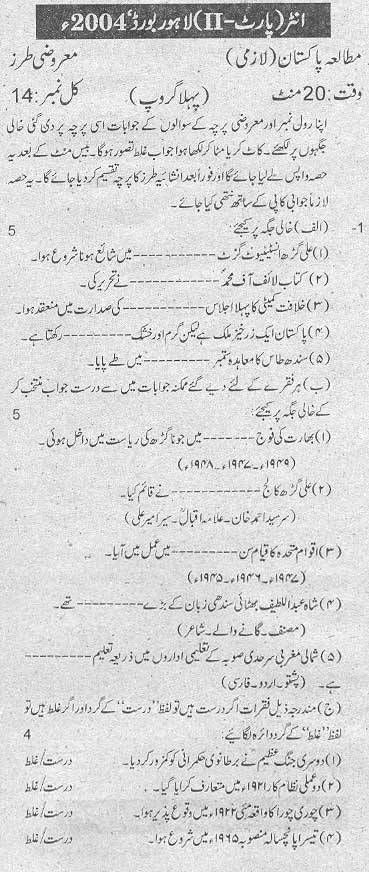 انٹر (پارٹ-II) لاہور بورڈ، 2004ء
مطالعہ پاکستان (لازمی) معروضی طرز
وقت: 20 منٹ (پہلا گروپ) کل نمبر: 14
اپنا رول نمبر اور معروضی پرچہ کے سوالوں کے جوابات اسی پرچہ پر دی گئی خالی
جگہوں پر لکھئے۔ کاٹ کر یا مٹا کر لکھا ہوا جواب غلط تصور ہوگا۔ بیس منٹ کے بعد یہ
حصہ واپس لے لیا جائے گا اور فوراً بعد انشائیہ طرز کا پرچہ تقسیم کر دیا جائے گا۔ یہ حصہ
لازماً جوابی کاپی کے ساتھ نتھی کیا جائے۔
1- (الف) خالی جگہ پر کیجئے: 5
(۱) علی گڑھ انسٹیٹیوٹ گزٹ ---------- میں شائع ہونا شروع ہوا۔
(۲) کتاب لائف آف محمدؐ ---------- نے تحریر کی۔
(۳) خلافت کمیٹی کا پہلا اجلاس ---------- کی صدارت میں منعقد ہوا۔
(۴) پاکستان ایک زرخیز ملک ہے لیکن گرم اور خشک ---------- رکھتا ہے۔
(۵) سندھ طاس کا معاہدہ ستمبر ---------- میں طے پایا۔
(ب) ہر فقرے کے لئے دیے گئے ممکنہ جوابات میں سے درست جواب منتخب کر
کے خالی جگہ پر کیجئے: 5
(۱) بھارت کی فوج -------- میں جوناگڑھ کی ریاست میں داخل ہوئی۔
(۱۹۴۹ء۔ ۱۹۴۷ء۔ ۱۹۴۸ء)
(۲) علی گڑھ کالج ---------- نے قائم کیا۔
(سرسید احمد خان۔ علامہ اقبالؒ۔ سید امیر علی)
(۳) اقوام متحدہ کا قیام سن ---------- میں عمل میں آیا۔
(۱۹۴۷ء۔ ۱۹۴۶ء۔ ۱۹۴۵ء)
(۴) شاہ عبداللطیف بھٹائی سندھی زبان کے بڑے -------- تھے۔
(مصنف۔ گانے والے۔ شاعر)
(۵) شمالی مغربی سرحدی صوبہ کے تعلیمی اداروں میں ذریعہ تعلیم ----------
ہے۔ (پشتو۔ اردو۔ فارسی)
(ج) مندرجہ ذیل فقرات اگر درست ہیں تو لفظ "درست" کے گرد اور اگر غلط ہیں تو
لفظ "غلط" کے گرد دائرہ لگائیے: 4
(۱) دوسری جنگ عظیم نے برطانوی حکمرانی کو کمزور کر دیا۔ درست/غلط
(۲) دو عملی نظام کار ۱۹۲۱ء میں متعارف کرایا گیا۔ درست/غلط
(۳) چوری چورا کا واقعہ مئی ۱۹۲۲ء میں وقوع پذیر ہوا۔ درست/غلط
(۴) تیسرا پانچسالہ منصوبہ ۱۹۶۵ء میں شروع ہوا۔ درست/غلط